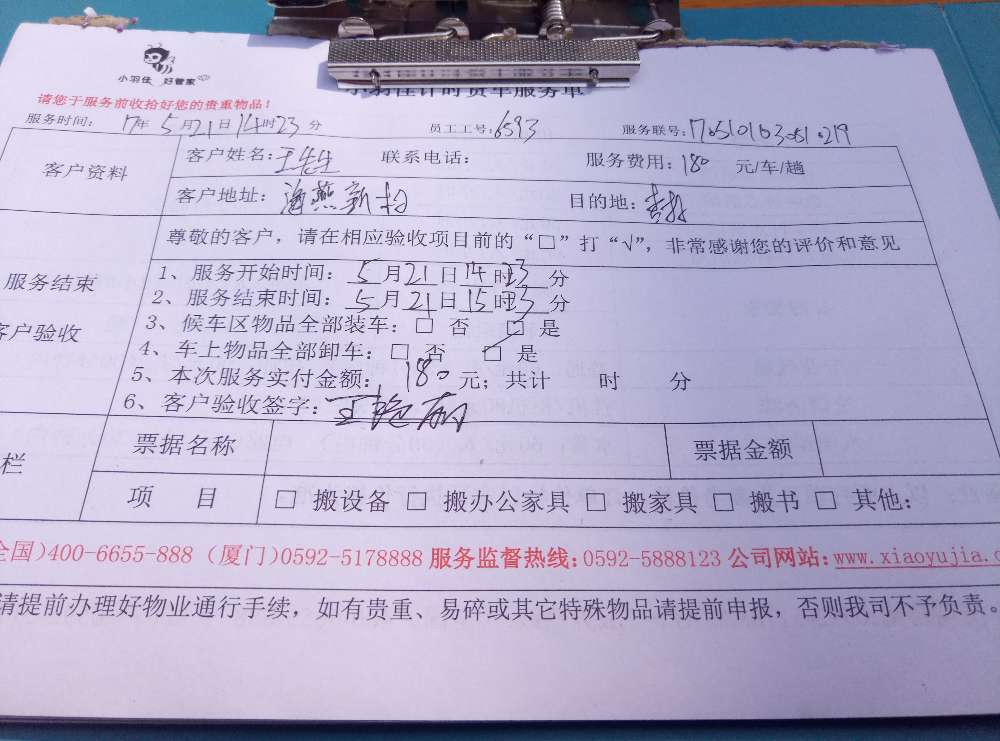 小羽佳 好管家
小羽佳计时货车服务单
请您于服务前收拾好您的贵重物品！
服务时间： 17年 5月21日14时23分 员工工号：6593 服务联号：
客户资料
客户姓名：王先生 联系电话： 服务费用：180 元/车/趟
客户地址： 海燕新村 目的地：
尊敬的客户，请在相应验收项目前的“□”打“√”，非常感谢您的评价和意见
服务结束
客户验收
1、服务开始时间： 5月21日14时23分
2、服务结束时间： 5月21日15时23分
3、候车区物品全部装车：□ 否 □ 是
4、车上物品全部卸车：□ 否 □ 是
5、本次服务实付金额： 180 元；共计 时 分
6、客户验收签字：王艳
栏
票据名称 票据金额
项 目 □ 搬设备 □ 搬办公家具 □ 搬家具 □ 搬书 □ 其他：
全国)400-6655-888 (厦门)0592-5178888 服务监督热线：0592-5888123 公司网站：www.xiaoyujia.c
请提前办理好物业通行手续，如有贵重、易碎或其它特殊物品请提前申报，否则我司不予负责。